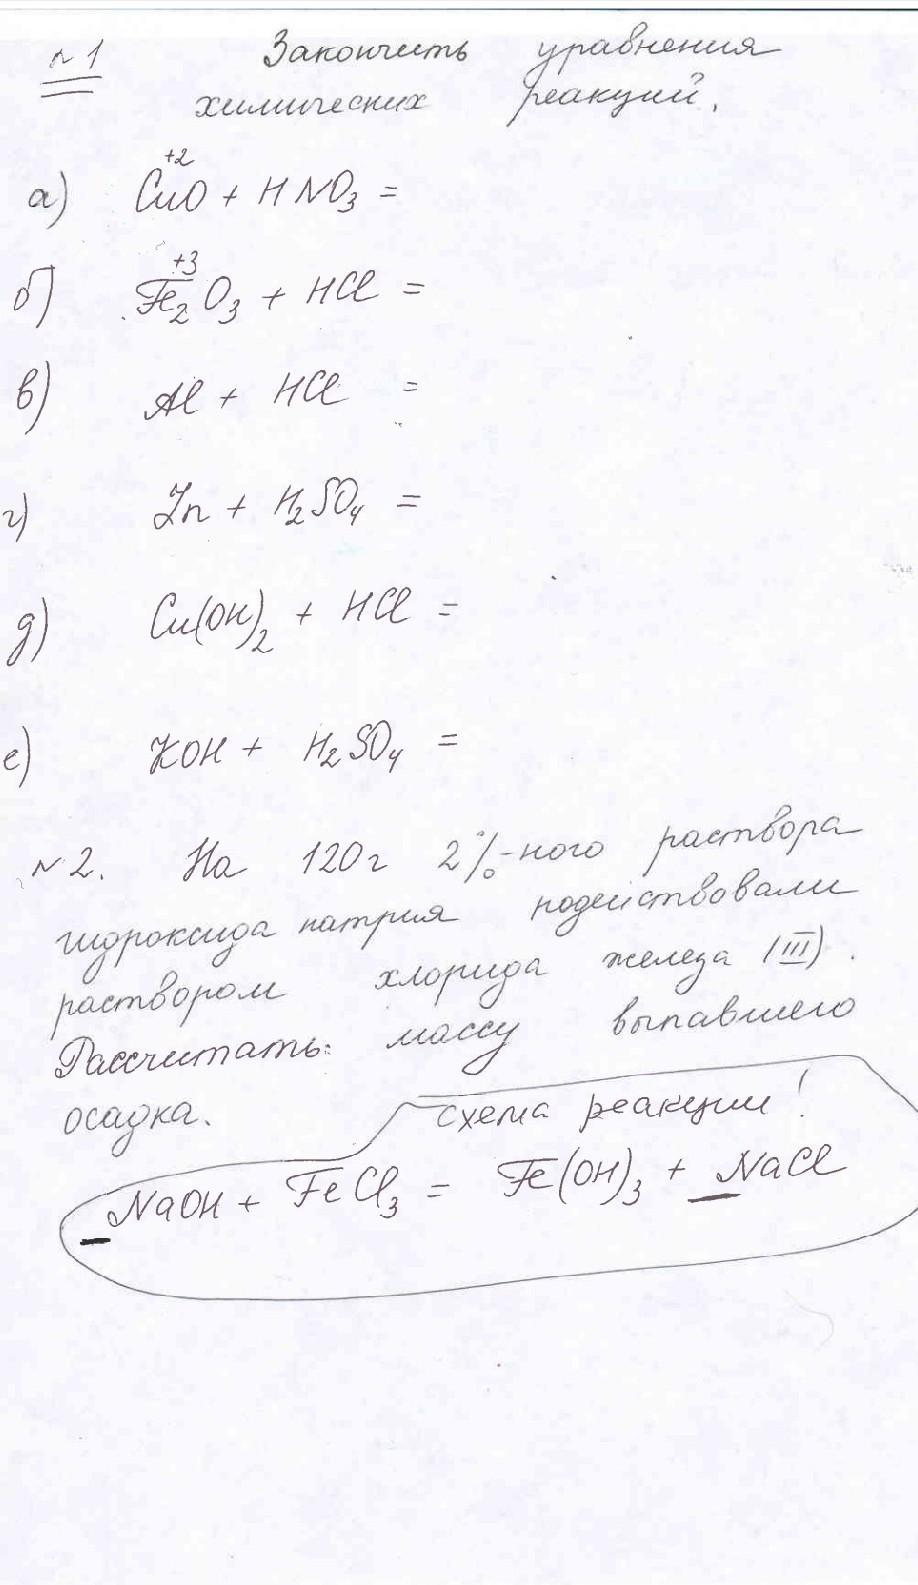 №1 Закончить уравнения
химических реакций.
+2
а) CuO + HNO₃ =
+3
б) Fe₂O₃ + HCl =
в) Al + HCl =
г) Zn + H₂SO₄ =
д) Cu(OH)₂ + HCl =
е) KOH + H₂SO₄ =
№2. На 120г 2%-ного раствора
гидроксида натрия подействовали
раствором хлорида железа (III).
Рассчитать массу выпавшего
осадка.
схема реакции!
_NaOH + FeCl₃ = Fe(OH)₃ + _NaCl